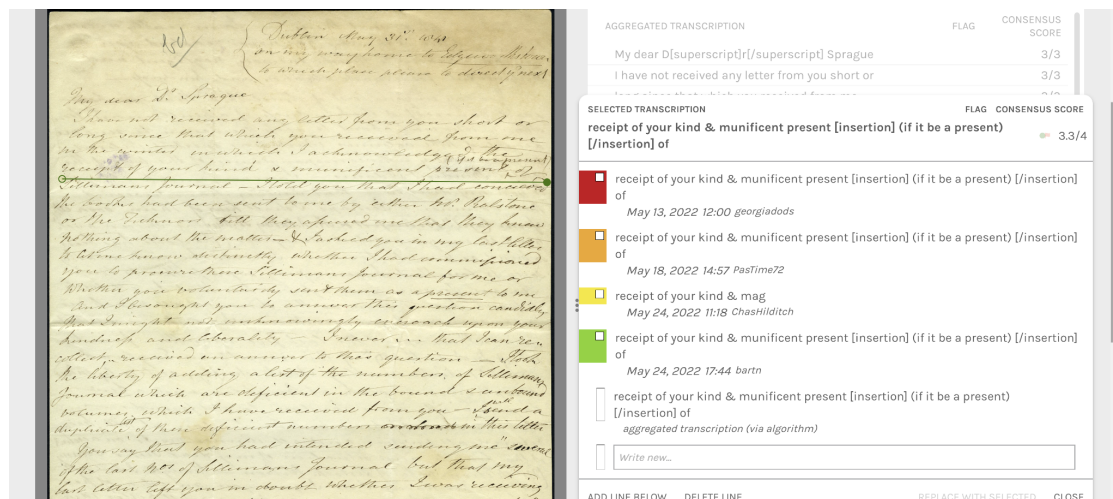 3d
Dublin May 31st 1841
on my way home to Edgeworthstown
to which place please to direct yr next
My dear Dr Sprague
I have not received any letter from you short or
long since that which you received from me
in the winter in which I acknowledged the
(if it be a present)
receipt of your kind & munificent present of
Sillimans Journal — I told you that I had conceived
the books had been sent to me by either Mr Ralstone
or Mr Ticknor till they assured me that they knew
nothing about the matter — & I asked you in my last letter
to let me know distinctly whether I had commissioned
you to procure these Sillimans Journal for me or
whether you voluntarily sent them as a present to me
And I besought you to answer this question candidly
that I might not unknowingly encroach upon your
kindness and liberality — I never that I can re
collect, received an answer to that question — I took
the liberty of adding a list of the numbers of Sillimans
Journal which are deficient in the bound & unbound
volumes which I have received from you — I send a
duplicate list of these deficient numbers in this letter
You say that you had intended sending me "several
of the last Nos of Sillimans Journal but that my
last letter left you in doubt whether I was receiving
AGGREGATED TRANSCRIPTION FLAG CONSENSUS SCORE
My dear D[superscript]r[/superscript] Sprague 3/3
I have not received any letter from you short or 3/3
long since that which you received from me 3/3
SELECTED TRANSCRIPTION FLAG CONSENSUS SCORE
receipt of your kind & munificent present [insertion] (if it be a present)
[/insertion] of
3.3/4
receipt of your kind & munificent present [insertion] (if it be a present) [/insertion]
of
May 13, 2022 12:00 georgiadods
receipt of your kind & munificent present [insertion] (if it be a present) [/insertion]
of
May 18, 2022 14:57 PasTime72
receipt of your kind & mag
May 24, 2022 11:18 ChasHilditch
receipt of your kind & munificent present [insertion] (if it be a present) [/insertion]
of
May 24, 2022 17:44 bartn
receipt of your kind & munificent present [insertion] (if it be a present)
[/insertion] of
aggregated transcription (via algorithm)
Write new...
ADD LINE BELOW DELETE LINE REPLACE WITH SELECTED CLOSE